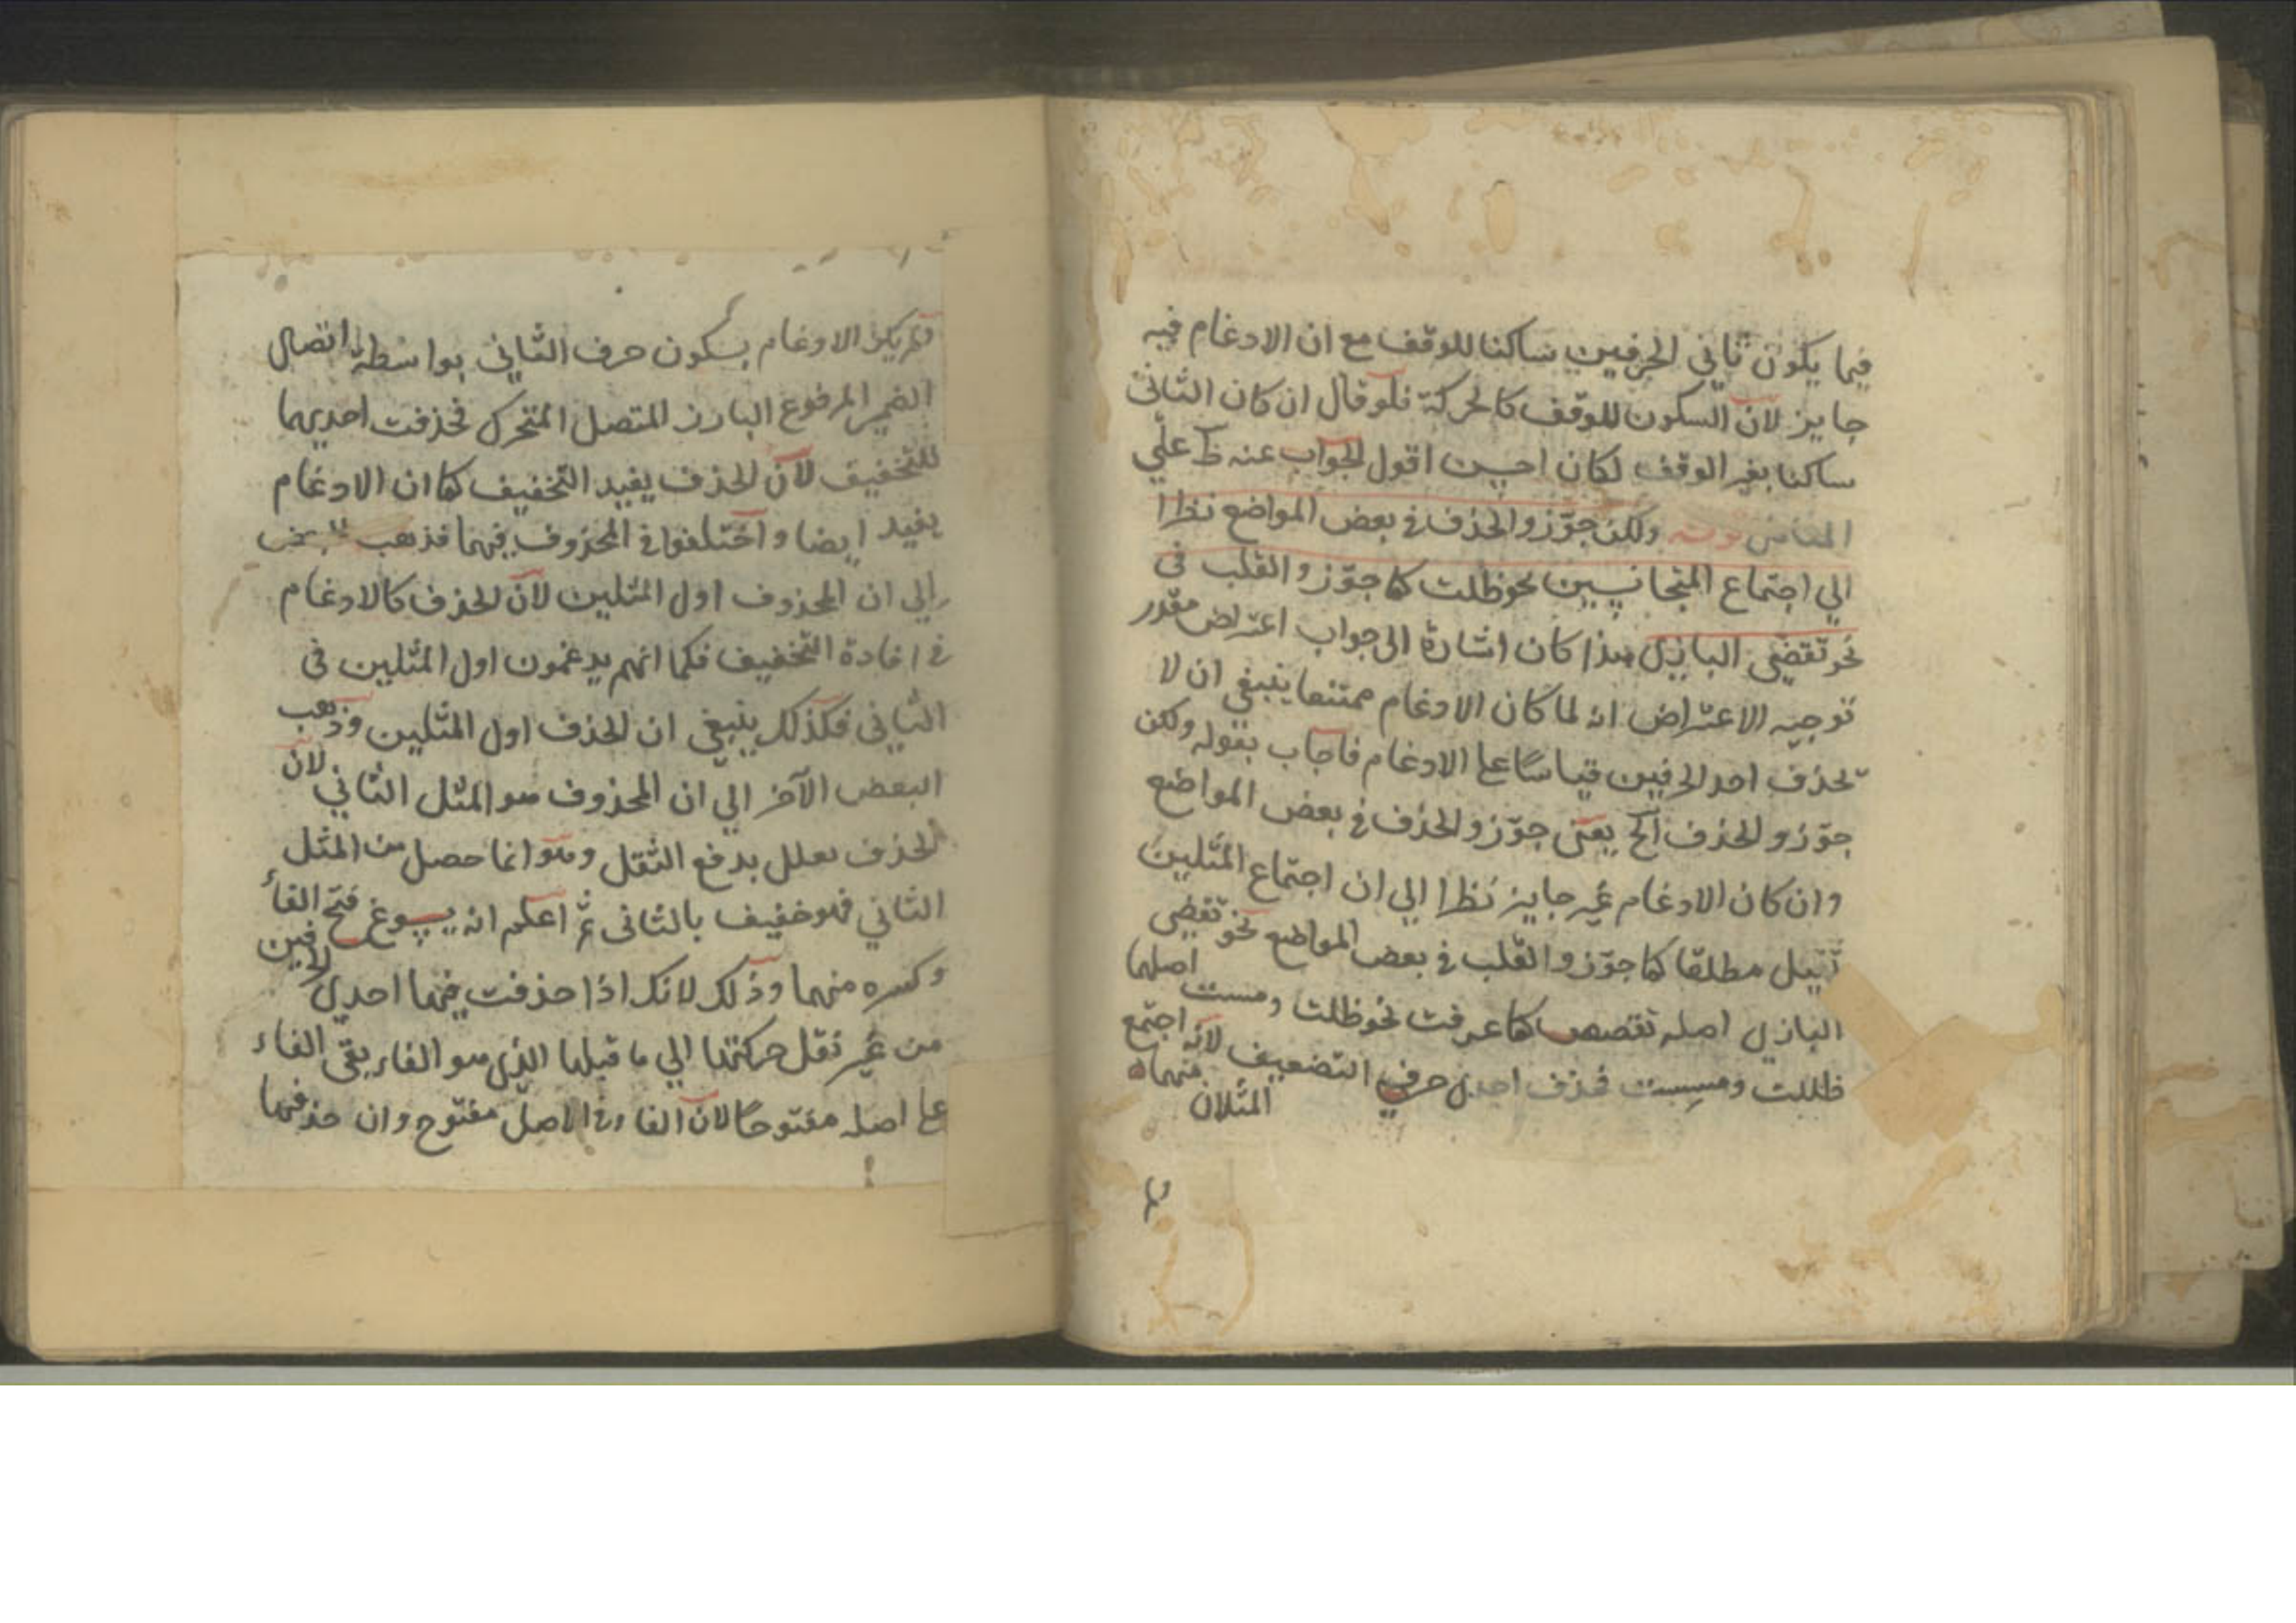 فيما يكون ثاني الحرفين ساكنا للوقف مع ان الادغام فيه
جايز لان السكون للوقف كالحركة فلو قال ان كان الثاني
ساكنا بغير الوقف لكان احسن اقول الجواب عنه ظ علي
ولكن جوّزوا الحذف في بعض المواضع نظرا
الي اجتماع المتجانسين نحو ظلت كما جوّزوا القلب في
نحو تقضي البازي هذا كان اشارة الى جواب اعتراض مقدر
توجيه الاعتراض انه لما كان الادغام ممتنعا ينبغي ان لا
تحذف احد الحرفين قياسًا على الادغام فاجاب بقوله ولكن
جوّزوا الحذف الخ يعني جوّزوا الحذف في بعض المواضع
وان كان الادغام غير جايز نظرا الي ان اجتماع المثلين
ثقيل مطلقا كما جوّزوا القلب في بعض المواضع نحو تقضي
البازي اصله تقضض كما عرفت نحو ظلت ومست اصلهما
ظللت ومسست فحذف احدي حرفي التضعيف لانه اجتمع
المثلان منهما
الادغام بسكون حرف الثاني بواسطة اتصال
الضمير المرفوع البارز المتصل المتحرك فحذفت احديهما
للتخفيف لان الحذف يفيد التخفيف كما ان الادغام
يفيد ايضا واختلفوا في المحذوف فيهما فذهب
الي ان المحذوف اول المثلين لان الحذف كالادغام
في افادة التخفيف فكما انهم يدغمون اول المثلين في
الثاني فكذلك ينبغي ان الحذف اول المثلين وذهب
البعض الآخر الي ان المحذوف هو المثل الثاني لان
الحذف معلل بدفع الثقل وهو انما حصل من المثل
الثاني فهو خفيف بالثاني ثم اعلم انه يسوغ فتح الفاء
وكسره منهما وذلك لانك اذا حذفت منهما احدي الحرفين
من غير نقل حركتها الي ما قبلها الذي هو الفاء بقي الفاء
على اصله مفتوحًا لان الفاء في الاصل مفتوح وان حذفتها